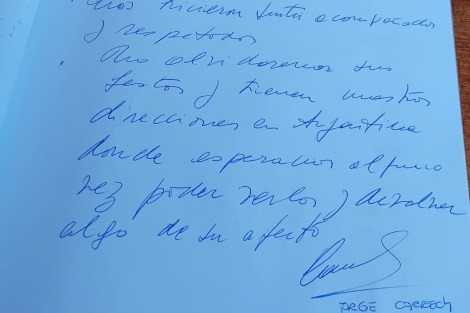 nos hicieron sentir acompañados
y respetados
No olvidaremos sus
gestos y tienen nuestras
direcciones en Argentina
donde esperamos alguna
vez poder verlos y devolver
algo de su afecto
JORGE